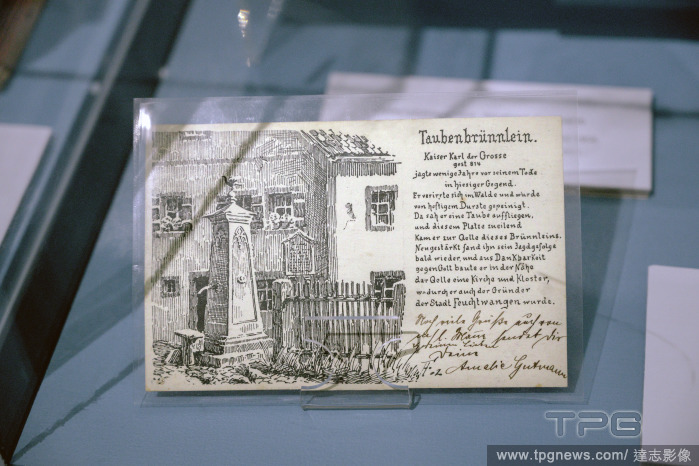 Taubenbrünnlein.
Kaiser Karl der Grosse
gest 814
jagte wenige Jahre vor seinem Tode
in hiesiger Gegend.
Er verirrte sich im Walde und wurde
von heftigem Durste gepeinigt.
Da sah er eine Taube auffliegen,
und diesem Platze zueilend
Kam er zur Qelle dieses Brünnleins.
Neugestärkt fand ihn sein Jagdgefolge
bald wieder, und aus Dankbarkeit
gegen Gott baute er in der Nähe
der Qelle eine Kirche und Kloster,
wodurch er auch der Gründer
der Stadt Feuchtwangen wurde.
Noch viele Grüße auch von
Mann sendet dir
Deine
Amalie Gutmann
TPG
www.tpgnews.com/ 達志影像